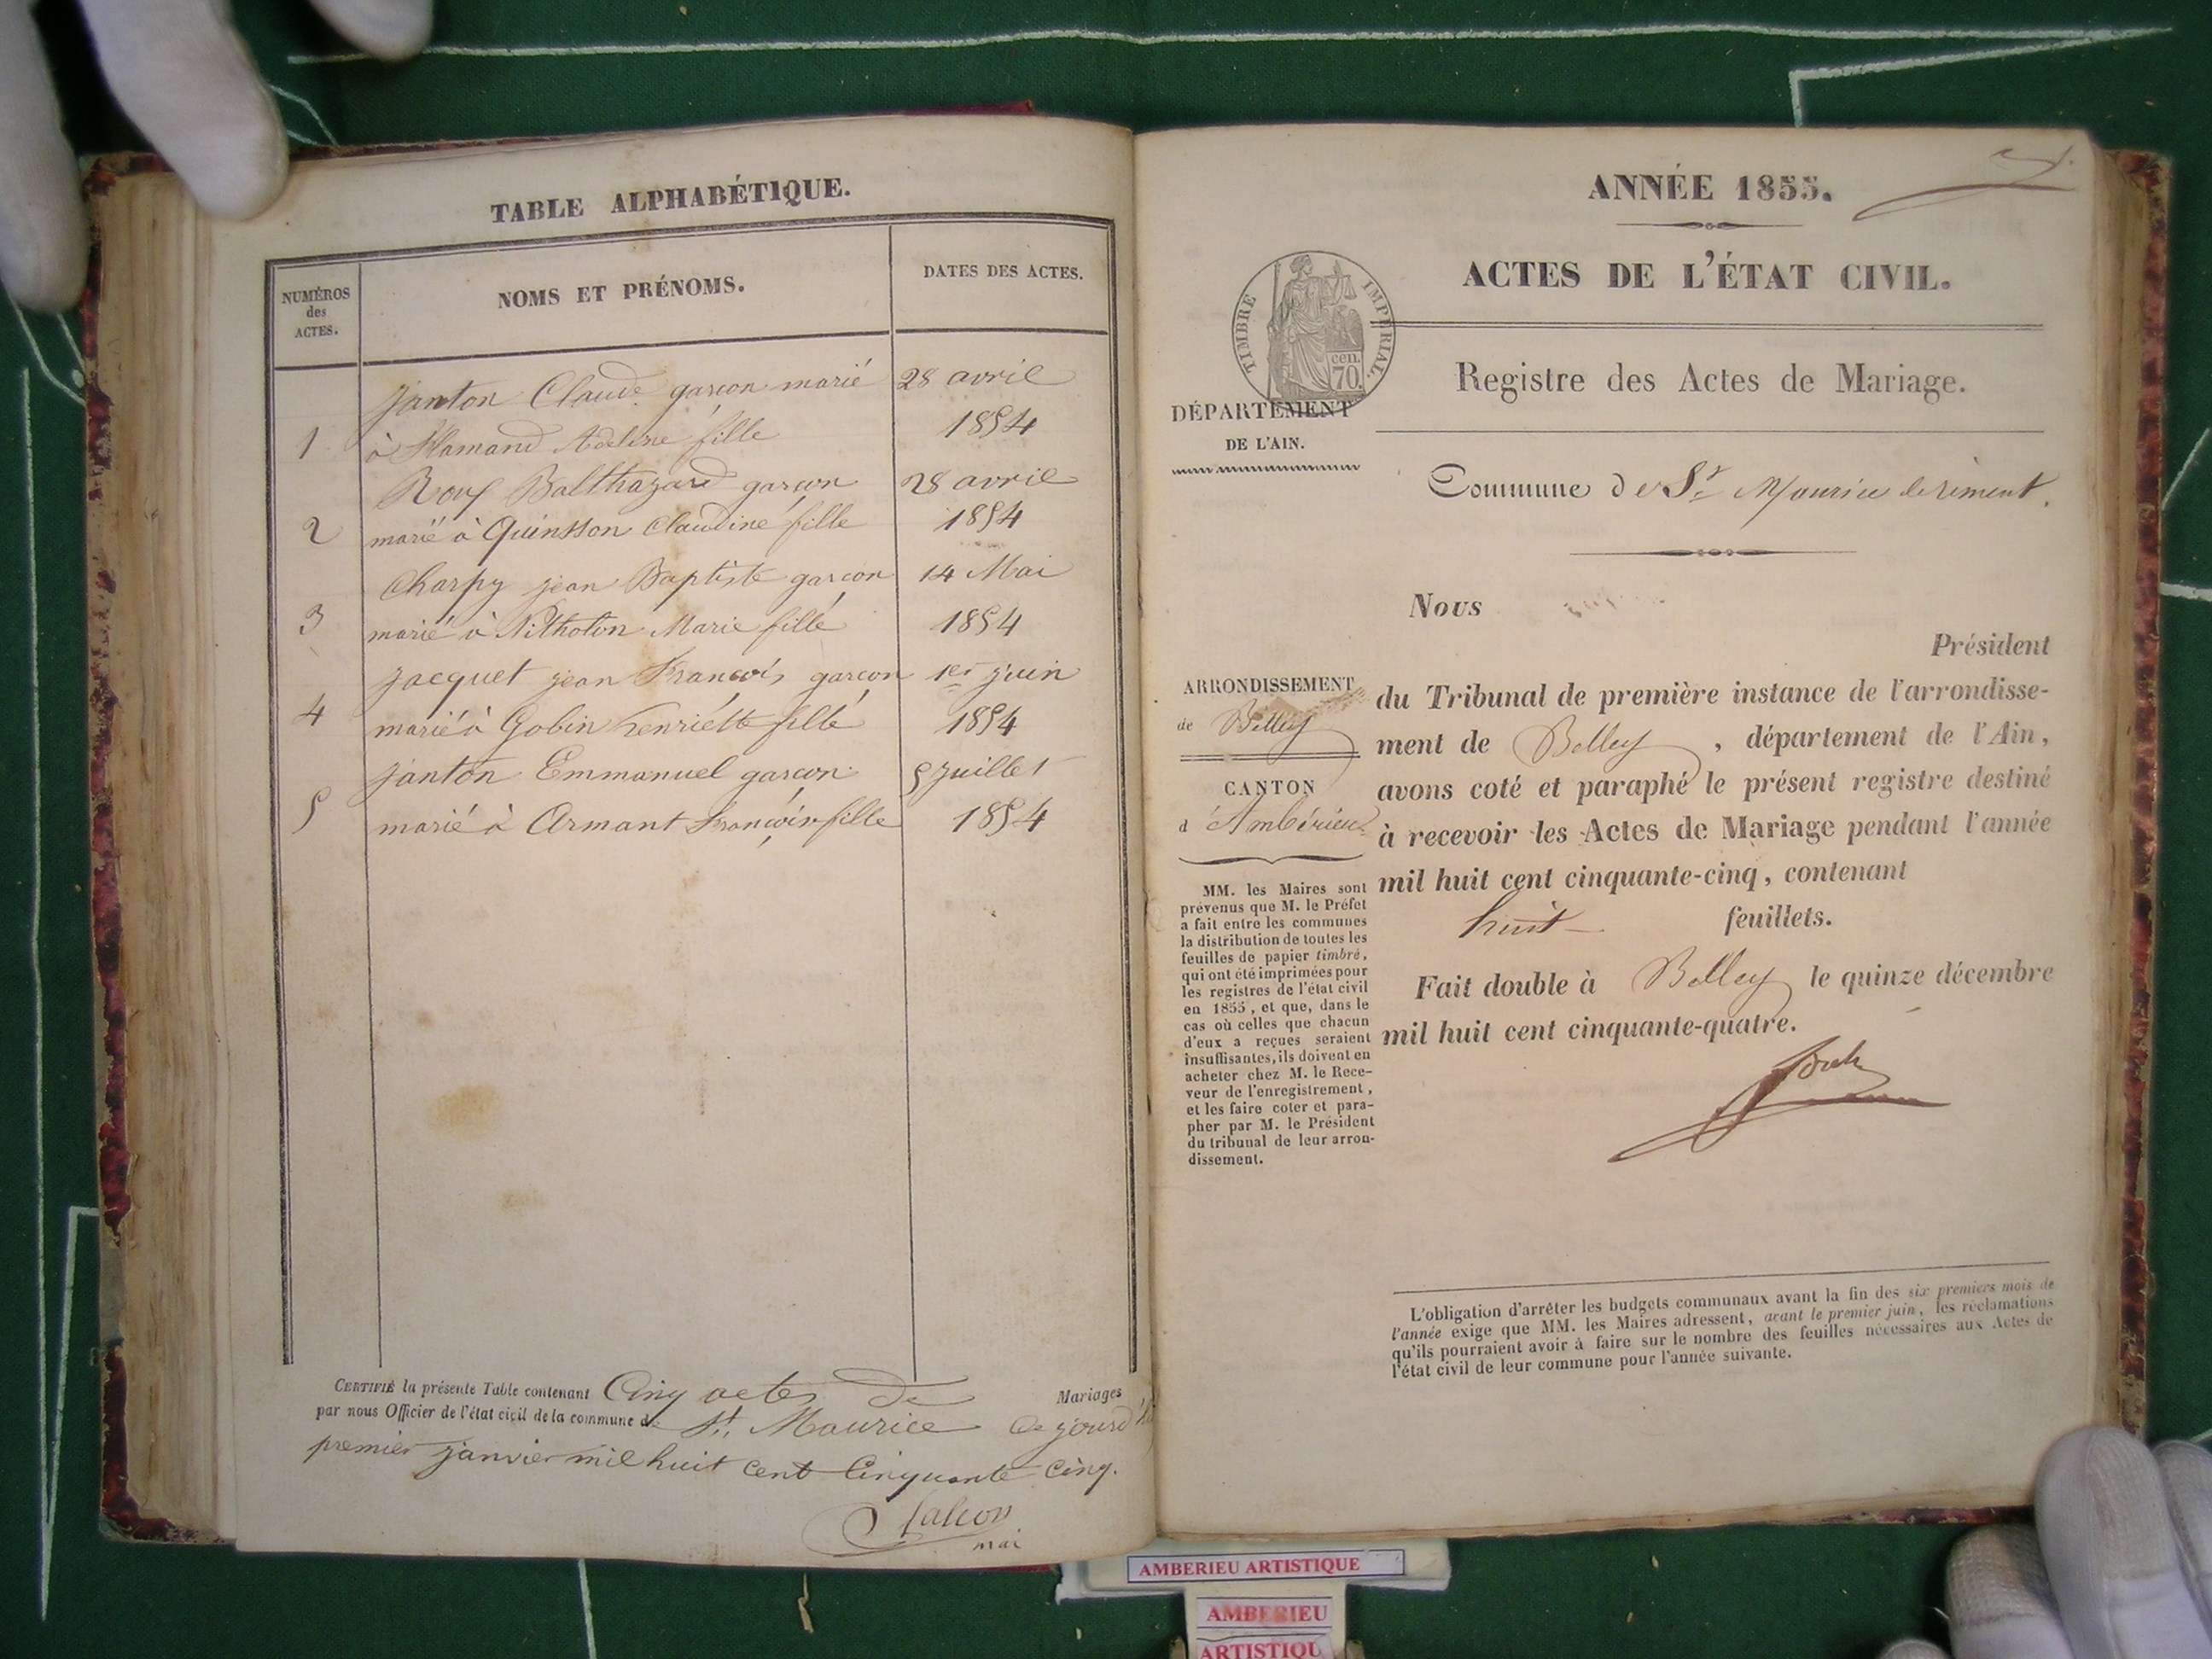 TABLE ALPHABÉTIQUE.
NUMÉROS
des
ACTES.
NOMS ET PRÉNOMS.
DATES DES ACTES.
Janton Claude garçon marié 28 avril
1 à Flamand Adeline fille 1854
Roux Balthazard garçon 28 avril
2 marié à Quinsson Claudine fille 1854
Charpy jean Baptiste garçon 14 Mai
3 marié à Marie fille 1854
Jacquet jean François garçon 1er juin
4 marié à Gobin henriette fille 1854
Janton Emmanuel garçon 5 juillet
5 marié à Armant fille 1854
CERTIFIÉ la présente Table contenant Cinq actes de Mariages
par nous Officier de l'état civil de la commune de St. Maurice Ce jourd'h
premier janvier mil huit cent Cinquante Cinq.
Falcon
mai
ANNÉE 1855.
ACTES DE L'ÉTAT CIVIL.
TIMBRE IMPÉRIAL.
cen.
70.
Registre des Actes de Mariage.
DÉPARTEMENT
DE L'AIN.
Commune de St Maurice de rément.
Nous
Président
ARRONDISSEMENT
de Belley
CANTON
d'Ambérieu
du Tribunal de première instance de l'arrondisse-
ment de Belley, département de l'Ain,
avons coté et paraphé le présent registre destiné
à recevoir les Actes de Mariage pendant l'année
mil huit cent cinquante-cinq, contenant
huit feuillets.
Fait double à Belley le quinze décembre
mil huit cent cinquante-quatre.
MM. les Maires sont
prévenus que M. le Préfet
a fait entre les communes
la distribution de toutes les
feuilles de papier timbré,
qui ont été imprimées pour
les registres de l'état civil
en 1855, et que, dans le
cas où celles que chacun
d'eux a reçues seraient
insuffisantes, ils doivent en
acheter chez M. le Rece-
veur de l'enregistrement,
et les faire coter et para-
pher par M. le Président
du tribunal de leur arron-
dissement.
L'obligation d'arrêter les budgets communaux avant la fin des six premiers mois de
l'année exige que MM. les Maires adressent, avant le premier juin, les réclamations
qu'ils pourraient avoir à faire sur le nombre des feuilles nécessaires aux Actes de
l'état civil de leur commune pour l'année suivante.
AMBERIEU ARTISTIQUE
AMBERIEU
ARTISTIQU